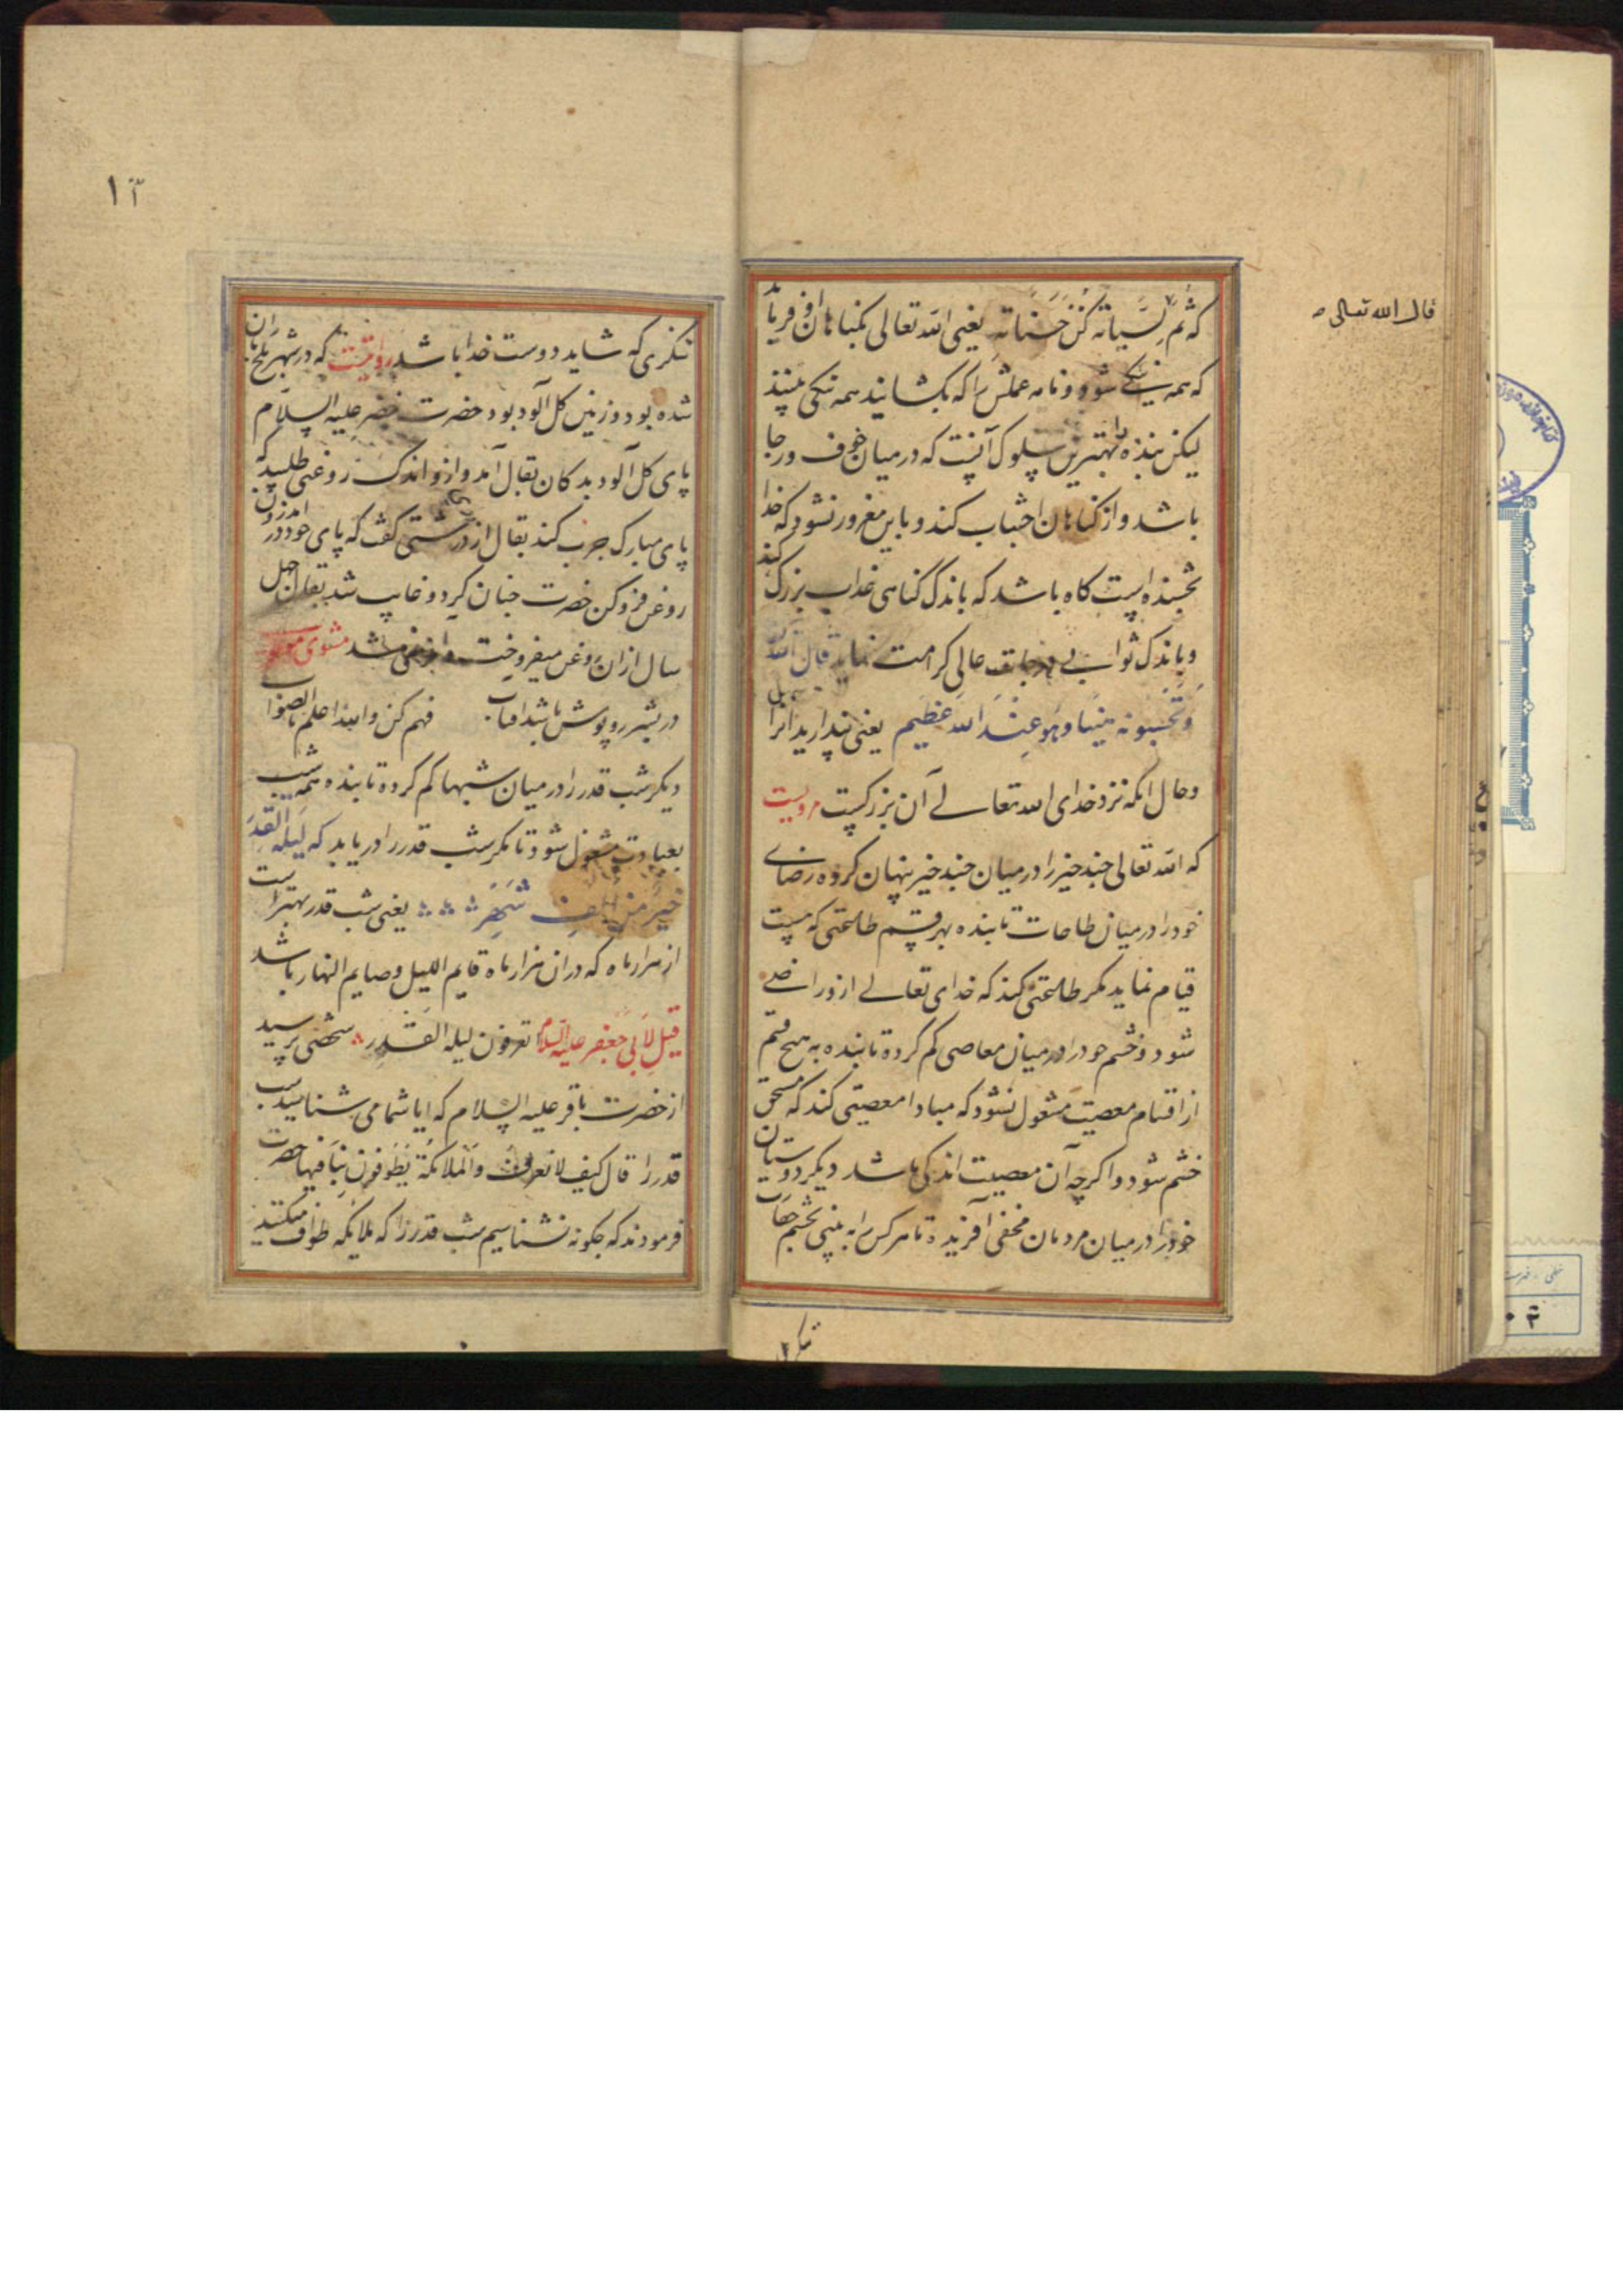 قال الله تعالی
که ثم لسیاته کن حسناته یعنی الله تعالی بگناهان او فرماید
که همه نیکی شود و نامه عملش را که بکشایند همه نیکی بینند
لیکن بنده را بهترین سلوک آنست که در میان خوف و رجا
باشد و از گناهان اجتناب کند و باین مغرور نشود که خدا
بخشنده است کاه باشد که باندک گناهی عذاب بزرک کند
و باندک ثوابی درجات عالی کرامت نماید قال الله
وتحسبونه هینا وهو عند الله عظیم یعنی پندارید انرا سهل
و حال انکه نزد خدای الله تعالی آن بزرکست مرویست
که الله تعالی چند چیز را در میان چند چیز پنهان کرده رضای
خود را در میان طاعات تا بنده بهر قسم طاعتی که هست
قیام نماید مکر طاعتی کند که خدای تعالی ازو راضی
شود و خشم خود را در میان معاصی کم کرده تا بنده به هیچ قسم
از اقسام معصیت مشغول نشود که مبادا معصیتی کند که مستحق
خشم شود و اکرچه آن معصیت اندکی باشد دیکر دوستان
خود را در میان مردمان مخفی آفریده تا هر کس را به بینی بچشم حقارت
نکری
۱۳
ننکری که شاید دوست خدا باشد روایتست که در شهر بلخ باران
شده بود و زمین کل آلود بود حضرت خضر علیه السلام
پای کل آلود بدکان بقال آمد و ازو اندک روغنی طلبید که
پای مبارک چرب کند بقال از درشتی کفت که پای خود در اندرون
روغن فرو کن حضرت چنان کرد و غایب شد بقال چهل
سال از آن روغن میفروخت و شد مثنوی مولوی
در بشر روپوش باشد افتاب فهم کن والله اعلم بالصواب
دیکر شب قدر را در میان شبها کم کرده تا بنده همه شب
بعبادت مشغول شود تا مکر شب قدر را دریابد که لیله القدر
خیر من الف شهر یعنی شب قدر بهتر است
از هزار ماه که در ان هزار ماه قایم اللیل و صایم النهار باشد
قیل لابی جعفر علیه السلام تعرفون لیله القدر شخصی پرسید
از حضرت باقر علیه السلام که ایا شما می شناسید شب
قدر را قال کیف لا نعرف والملائکة یطوفون بنا فیها حضرت
فرمودند که چکونه نشناسیم شب قدر را که ملایکه طواف میکنند